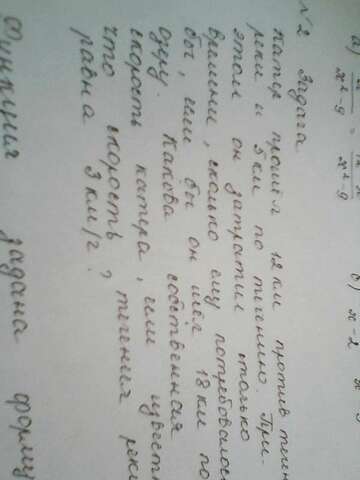 а)
x² - 9 = x² - 9
б) x - 2
№ 2 Задача
Катер прошёл 12 км против
реки и 5 км по течению. При
этом он затратил столько
времени, сколько ему потребовалось
бы, если бы он шёл 18 км по
озеру. Какова собственная
скорость катера, если
что скорость течения
равна 3 км/ч?
Функция задана